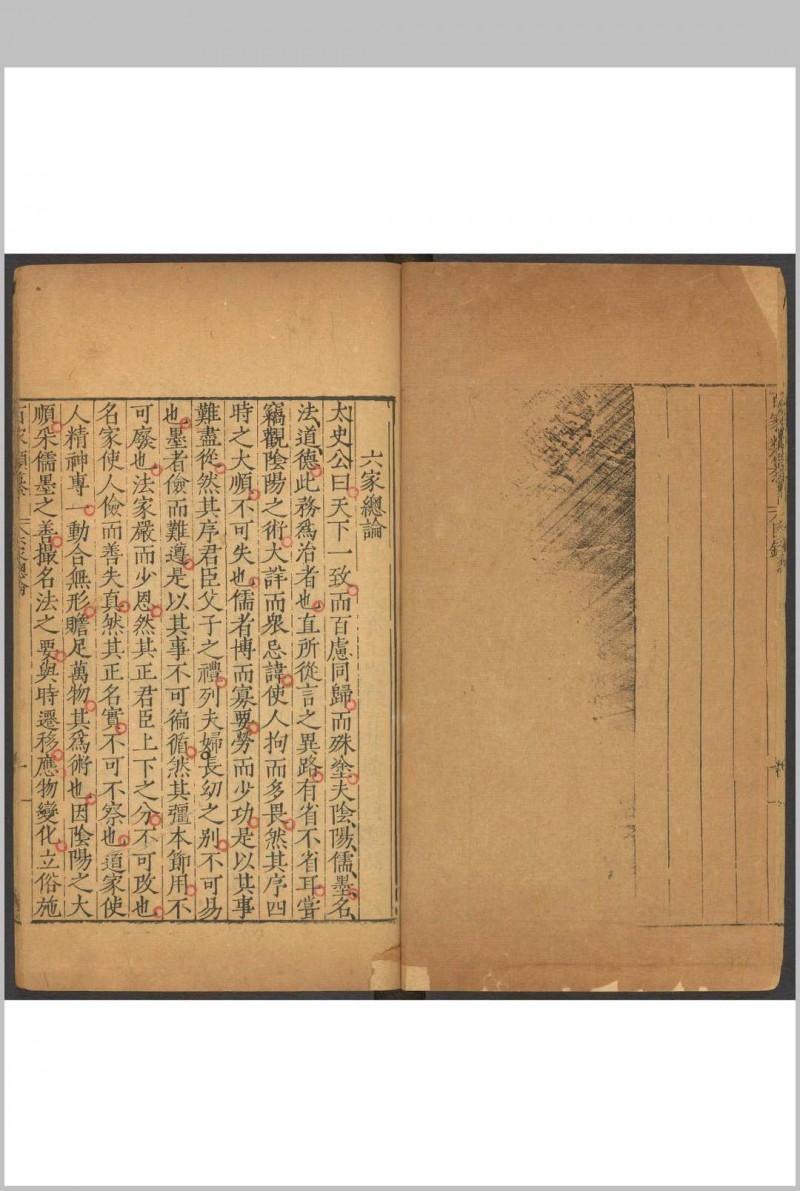 六家總論
太史公曰天下一致而百慮同歸而殊塗夫陰陽儒墨名
法道德此務爲治者也直所從言之異路有省不省耳甞
竊觀陰陽之術大詳而衆忌諱使人拘而多畏然其序四
時之大順不可失也儒者博而寡要勞而少功是以其事
難盡從然其序君臣父子之禮列夫婦長幼之别不可易
也墨者儉而難遵是以其事不可徧循然其彊本節用不
可廢也法家嚴而少恩然其正君臣上下之分不可改也
名家使人儉而善失真然其正名實不可不察也道家使
人精神專一動合無形贍足萬物其爲術也因陰陽之大
順采儒墨之善撮名法之要與時遷移應物變化立俗施